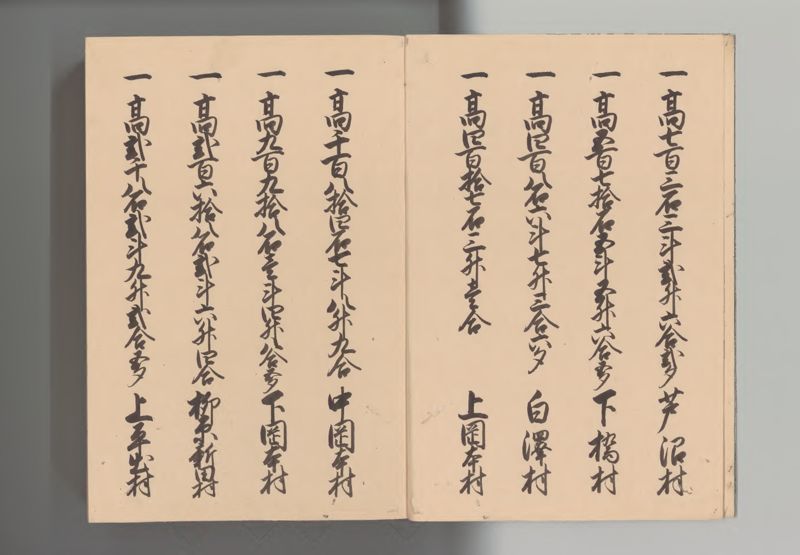 一高七百三石三斗弐升六合弐夕 芦沼村
一高五百七拾石五斗五升六合五夕 下橋村
一高四百八石六斗七升三合六夕 白澤村
一高四百拾七石三升壱合 上岡本村
一高千百八拾四石七斗八升九合 中岡本村
一高九百九拾八石壱斗四升八合五夕 下岡本村
一高弐百六拾八石弐斗六升四合 柳原新田村
一高弐千八石弐斗九升弐合五夕 上平出村